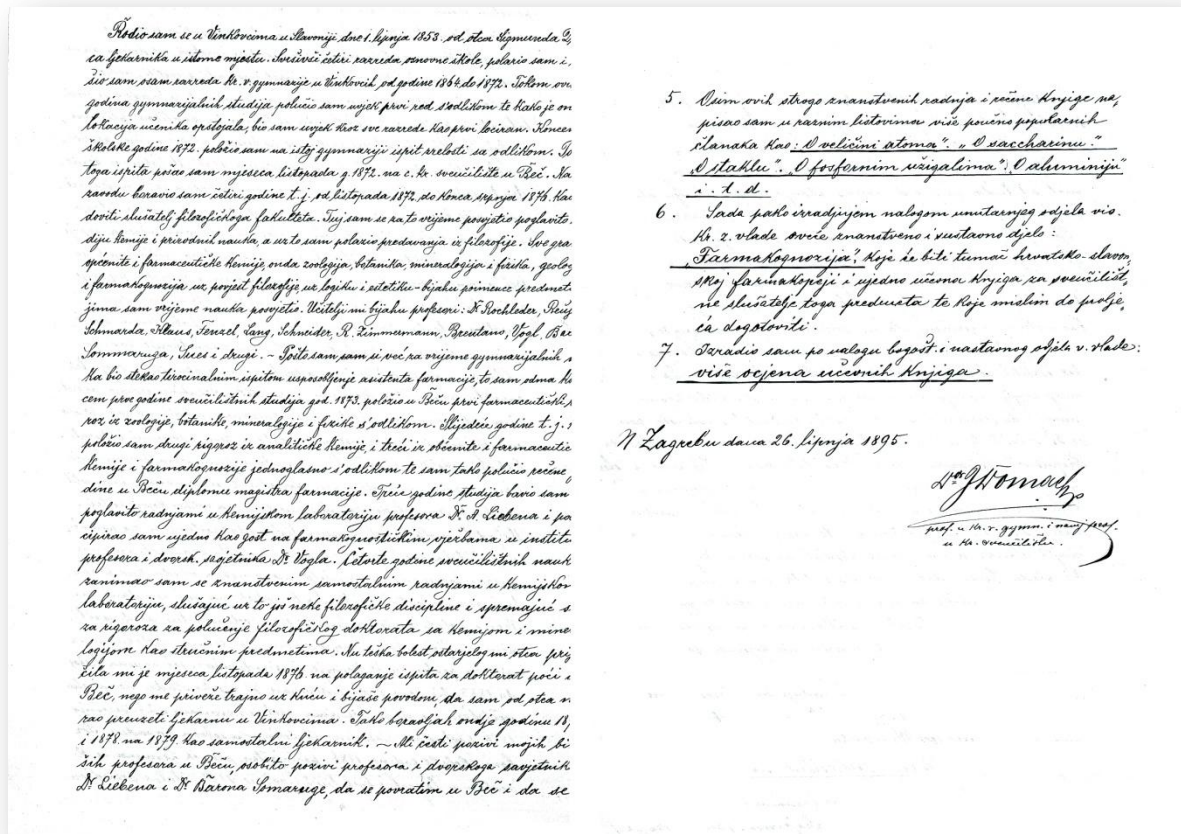 Rodio sam se u Vinkovcima u Slavoniji dne 1. lipnja 1853. od otca Sigmunda D,
ca ljekarnika u istome mjestu. Svršivši četiri razreda osnovne škole, polazio sam i,
šio sam osam razreda kr. v. gymnazije u Vinkovcih od godine 1864 do 1872. Tokom ov
godina gymnazijalnih studija polučio sam uvjek prvi red s'odlikom te kako je on
lokacija učenika opstojala, bio sam uvjek kroz sve razrede kao prvi lociran. Koncem
školske godine 1872. položio sam na istoj gymnaziji ispit zrelosti sa odlikom. Po
toga ispita pošao sam mjeseca listopada g. 1872. na c. kr. sveučilište u Beč. Na
zavodu boravio sam četiri godine t. j. od listopada 1872. do konca srpnja 1876. kao
doviti slušatelj filozofičkoga fakulteta. Tuj sam se za to vrijeme posvjetio poglavito
diju kemije i prirodnih nauka, a uz to sam polazio predavanja iz filozofije. Sve gra
općenite i farmaceutičke kemije, onda zoologija, botanika, mineralogija i fizika, geolog
i farmakognozija uz povjest filozofije, uz logiku i estetiku – bijahu poimence predmeti
jima sam vrijeme nauka posvjetio. Učitelji mi bijahu profesori: Dr Rochleder,
Schmarda, Klaus, Fenzel, Lang, Schneider, R. Zimmermann, Brentano, Vogl,
Sommaruga, Suess i drugi. – Pošto sam sam si već za vrijeme gymnazijalnih
ka bio stekao tirocinalnim ispitom usposobljenje asistenta farmacije, to sam odma
cem prve godine sveučilištnih studija god. 1873. položio u Beču prvi farmaceutički
roz iz zoologije, botanike, mineralogije i fizike s'odlikom. Slijedeće godine t. j.
položio sam drugi rigoroz iz analitičke kemije, i treći iz općenite i farmaceutič
kemije i farmakognozije jednoglasno s'odlikom te sam tako polučio rečene
dine u Beču diplomu magistra farmacije. Treće godine studija bavio sam
poglavito radnjami u kemijskom laboratoriju profesora Dr. A. Liebena i pa
cipirao sam ujedno kao gost na farmakognostičkim vježbama u institu
profesora i dvorsk. savjetnika Dr Vogla. Četvrte godine sveučilištnih nauk
zanimao sam se znanstvenim samostalnim radnjami u kemijskom
laboratoriju, slušajuć uz to još neke filozofičke discipline i spremajuć s
za rigoroza za polučenje filozofičkog doktorata sa kemijom i mine
logijom kao stručnim predmetima. Nu teška bolest ostarjelog mi otca
čila mi je mjeseca listopada 1876. na polaganje ispita za doktorat poći
Beč, nego me priveže trajno uz kuću i bijaše povodom, da sam od otca m
rao preuzeti ljekarnu u Vinkovcima. Tako boravljah ondje godinu 18
i 1878. na 1879. kao samostalni ljekarnik. – Ali česti pozivi mojih bi
ših profesora u Beču, osobito pozivi profesora i dvorskoga savjetnik
Dr Liebena i Dr Barona Somaruge, da se povratim u Beč i da se
5. Osim ovih strogo znanstvenih radnja i rečene knjige na,
pisao sam u raznim listovima više poučno popularnih
članaka kao: „O veličini atoma". „O saccharinu".
„O staklu". „O fosfornim užigalima". „O aluminiju"
i. t. d.
6. Sada pako izradjujem nalogom unutarnjeg odjela vis.
kr. z. vlade sveće znanstveno i sustavno djelo:
„Farmakognozija", koje će biti tumač hrvatsko-slavon,
skoj farmakopeji i ujedno učevna knjiga za sveučilišt,
ne slušatelje toga predmeta te koje mislim do prolje,
ća dogotoviti.
7. Izradio sam po nalogu bogošt. i nastavnog odjela v. vlade:
više ocjena učevnih knjiga.
U Zagrebu dana 26. lipnja 1895.
Dr J Domac
prof. u kr. v. gymn. i prof.
u kr. sveučilištu.